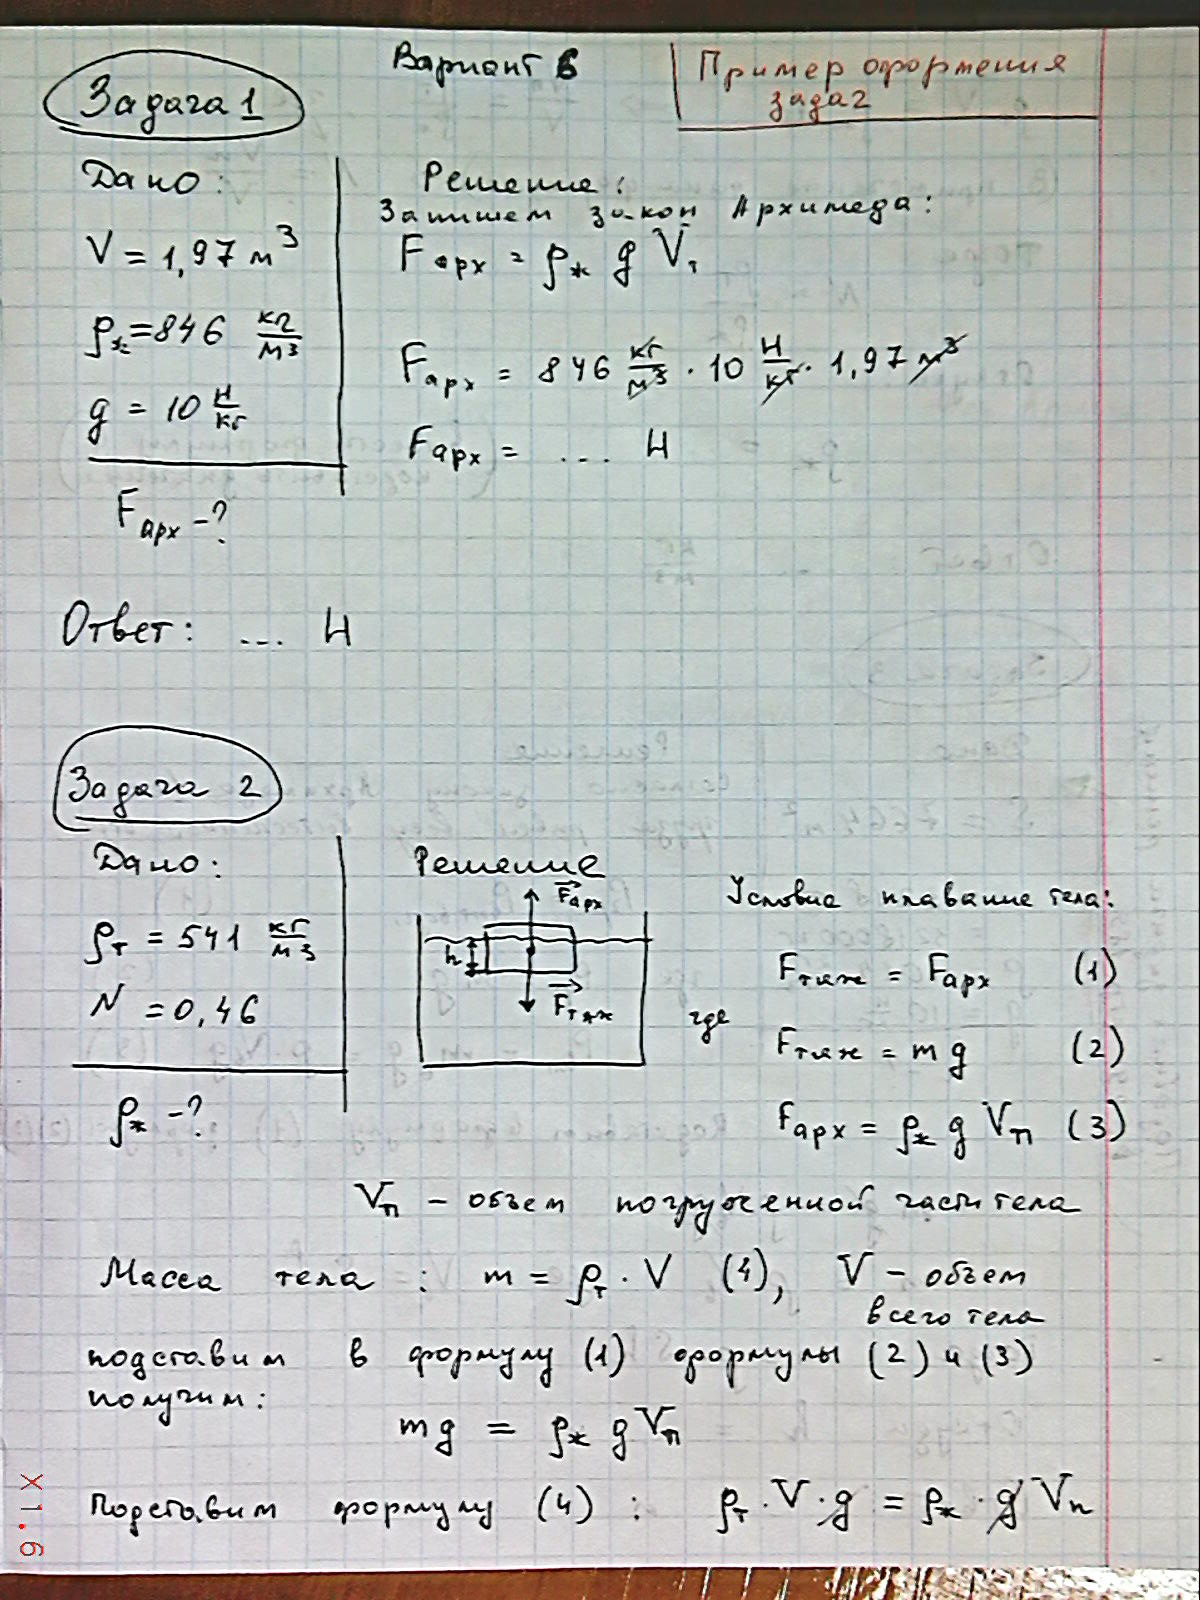 Вариант 6
Пример оформления
задач
Задача 1
Дано:
V = 1,97 м³
ρж = 846 кг/м³
g = 10 Н/кг
Fарх - ?
Решение:
Запишем закон Архимеда:
Fарх = ρж g Vт
Fарх = 846 кг/м³ · 10 Н/кг · 1,97 м³
Fарх = ... Н
Ответ: ... Н
Задача 2
Дано:
ρт = 541 кг/м³
N = 0,46
ρж - ?
Решение
Fарх
h
Fтяж
Условие плавание тела:
Fтяж = Fарх (1)
где
Fтяж = mg (2)
Fарх = ρж g Vп (3)
Vп – объем погруженной части тела
Масса тела : m = ρт · V (4), V – объем
всего тела
подставим в формулу (1) формулы (2) и (3)
получим:
mg = ρж g Vп
Подставим формулу (4) : ρт · V · g = ρж · g Vп
X1.6